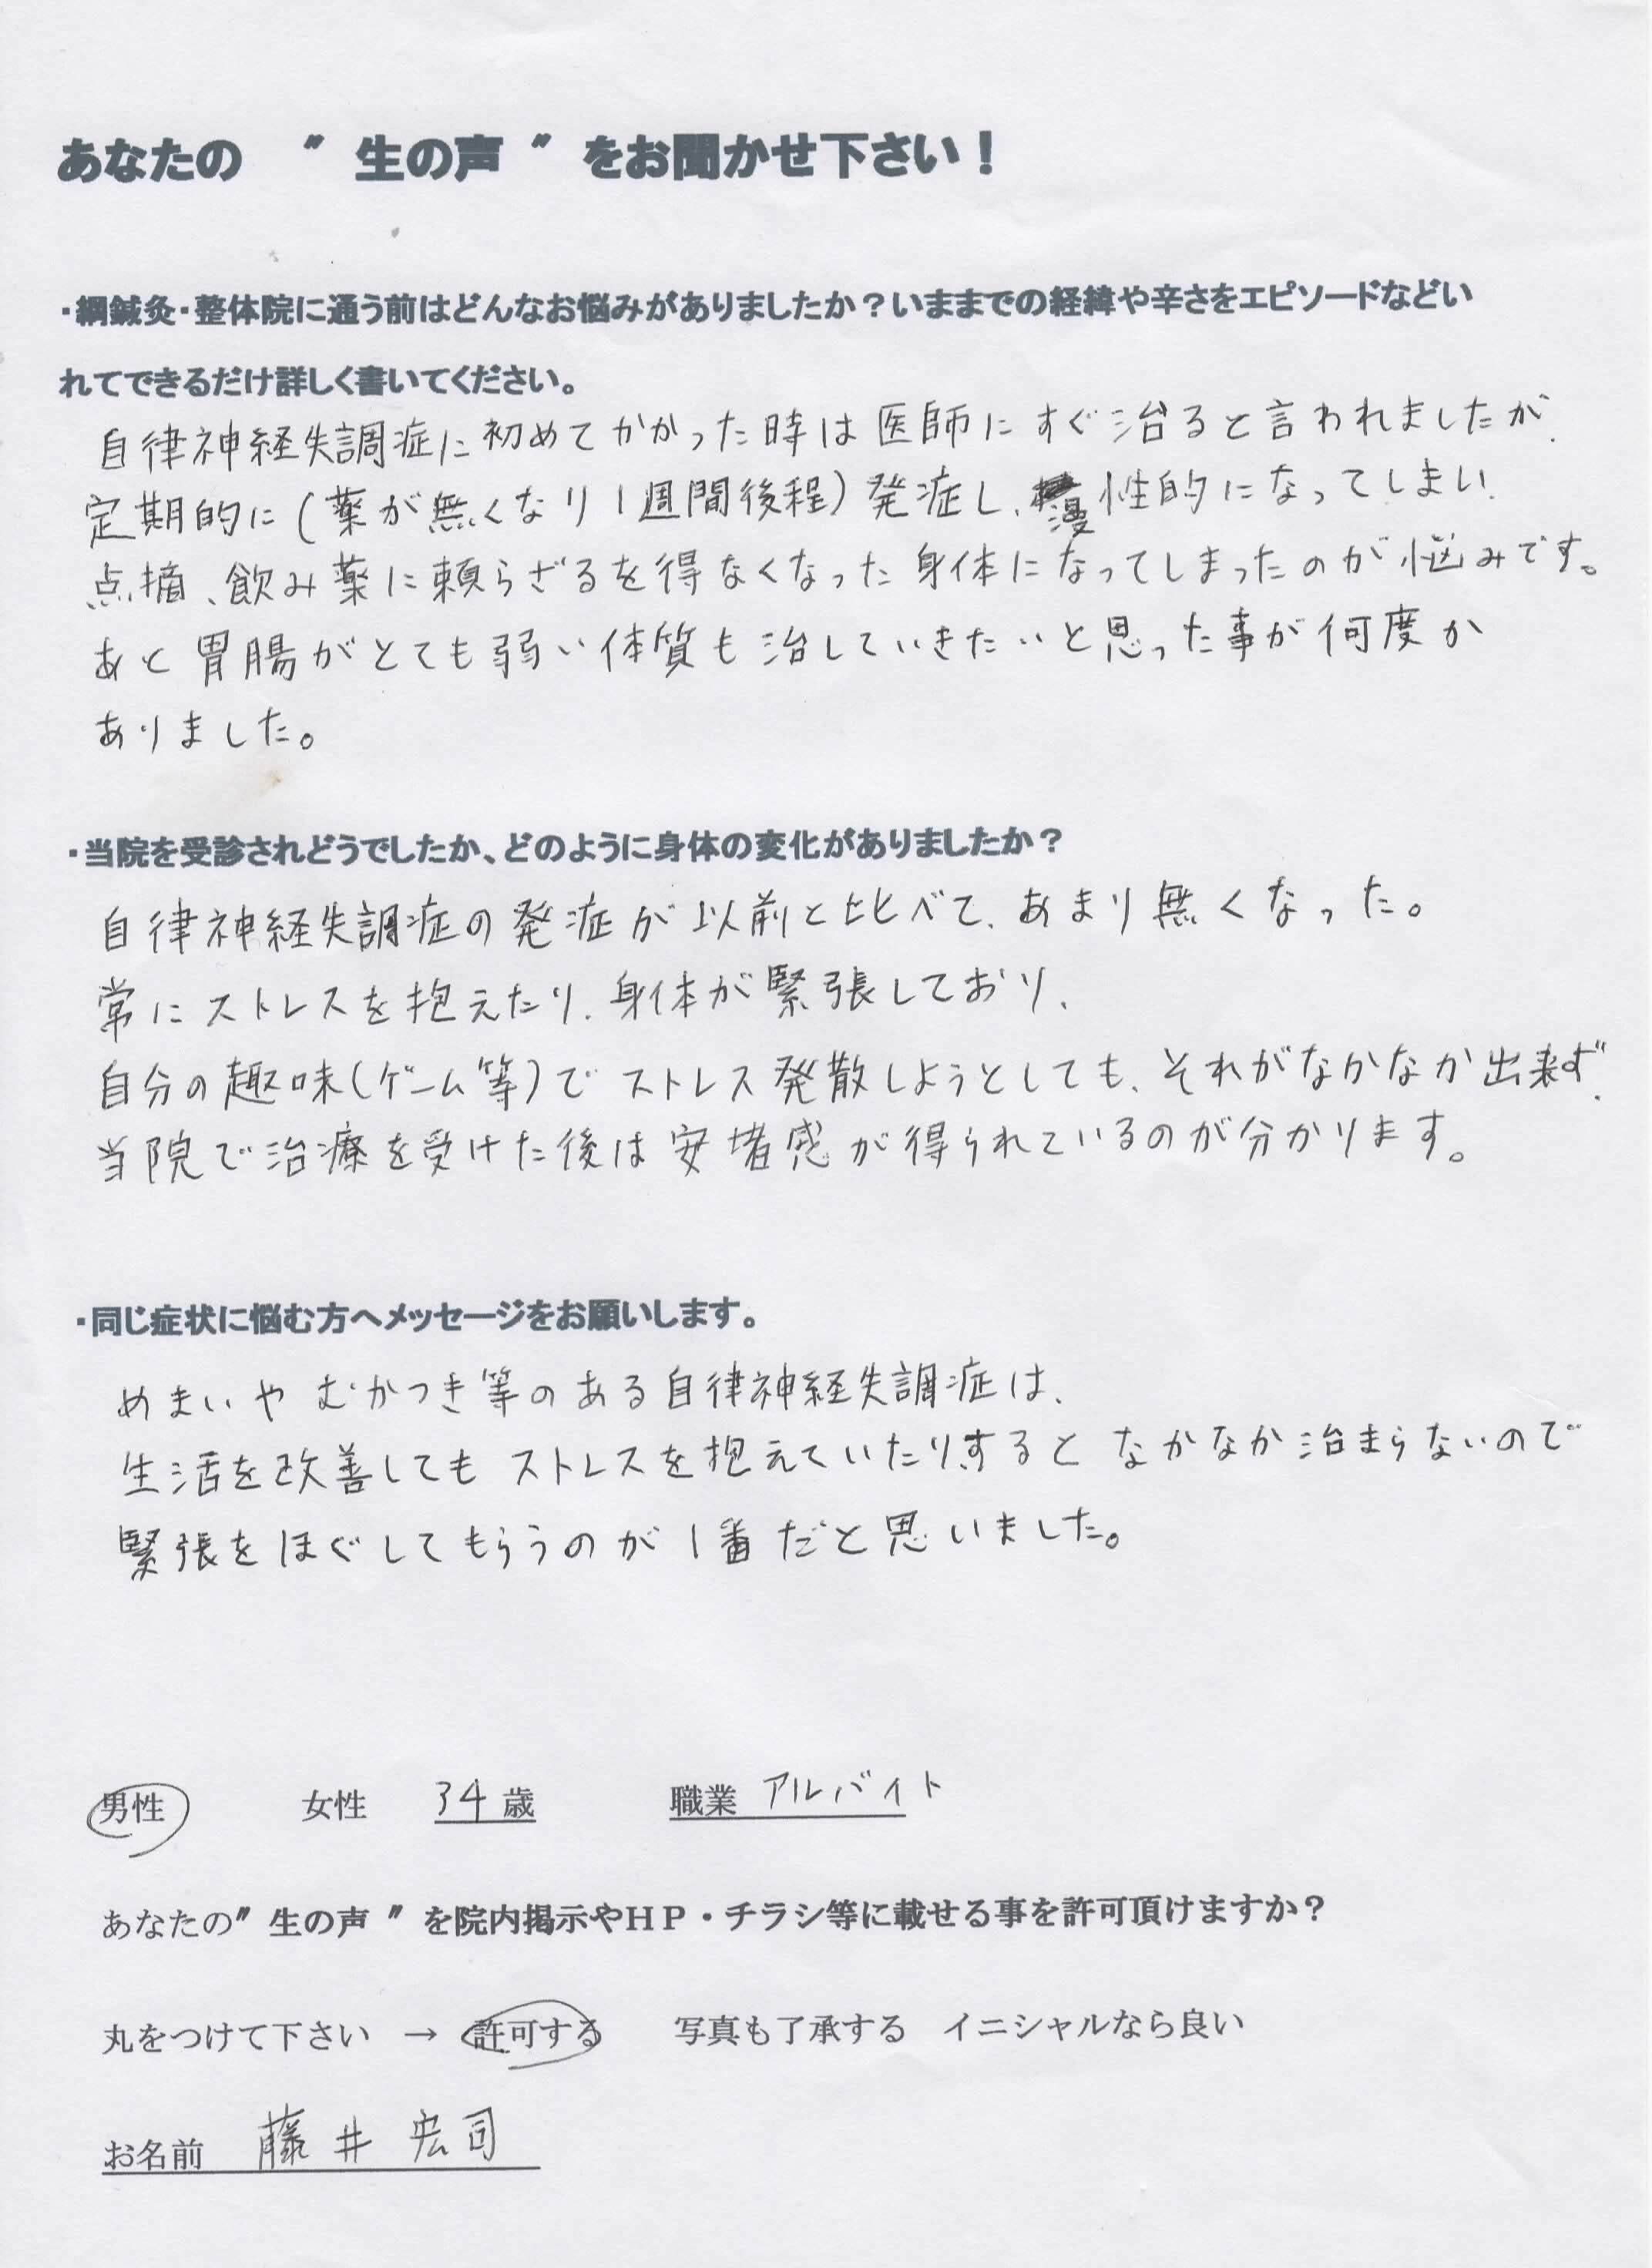 あなたの 〝 生の声 〟 をお聞かせ下さい！
・綱鍼灸・整体院に通う前はどんなお悩みがありましたか？いままでの経緯や辛さをエピソードなどい
れてできるだけ詳しく書いてください。
自律神経失調症に初めてかかった時は医師にすぐ治ると言われましたが、
定期的に(薬が無くなり1週間後程)発症し、慢性的になってしまい、
点摘、飲み薬に頼らざるを得なくなった身体になってしまったのが悩みです。
あと胃腸がとても弱い体質も治していきたいと思った事が何度か
ありました。
・当院を受診されどうでしたか、どのように身体の変化がありましたか？
自律神経失調症の発症が以前と比べて、あまり無くなった。
常にストレスを抱えたり、身体が緊張しており、
自分の趣味(ゲーム等)でストレス発散しようとしても、それがなかなか出来ず、
当院で治療を受けた後は安堵感が得られているのが分かります。
・同じ症状に悩む方へメッセージをお願いします。
めまいやむかつき等のある自律神経失調症は、
生活を改善してもストレスを抱えていたりするとなかなか治まらないので
緊張をほぐしてもらうのが1番だと思いました。
男性 女性 34歳 職業 アルバイト
あなたの〝 生の声 〟を院内掲示やHP・チラシ等に載せる事を許可頂けますか？
丸をつけて下さい → 許可する 写真も了承する イニシャルなら良い
お名前 藤井 宏司